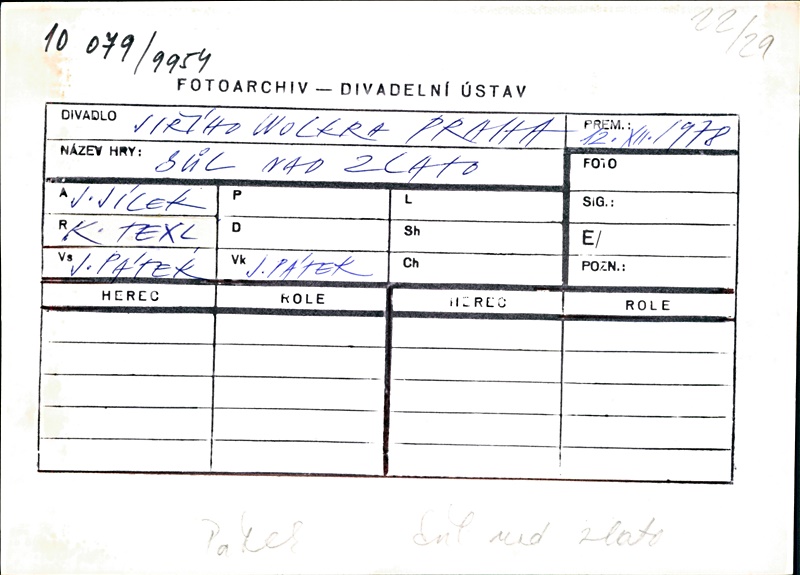 22/29
10 079/9954
FOTOARCHIV — DIVADELNÍ ÚSTAV
DIVADLO JIŘÍHO WOLKRA PRAHA PREM.: 12. XII. 1978
NÁZEV HRY: SŮL NAD ZLATO FOTO
A J. JÍLEK P L SIG.:
R K. TEXL D Sh E/
Vs J. PÁTEK Vk J. PÁTEK Ch POZN.:
HEREC ROLE HEREC ROLE
Sůl nad zlato